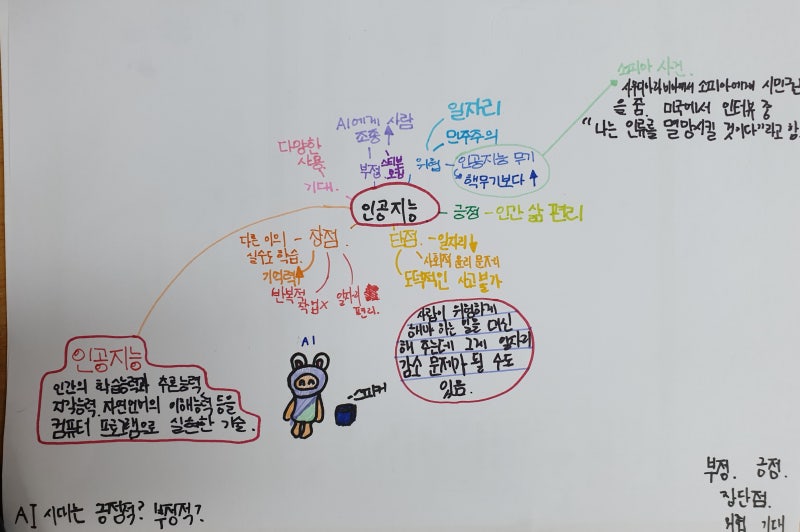 소피아 사건.
사우디아라비아에서 소피아에게 시민권
을 줌. 미국에서 인터뷰 중
"나는 인류를 멸망시킬 것이다"라고 함.
일자리
민주주의
위협 - 인공지능 무기
핵무기보다 ↑
AI에게 사람
조종
부정
스티븐
호킹
다양한
사용
기대.
인공지능
긍정 - 인간 삶 편리
장점.
다른 이의
실수도 학습.
기억력↑
반복적
작업×
일자리
편리.
단점. - 일자리↓
사회적 윤리 문제
도덕적인 사고 불가
사람이 위험하게
해야 하는 일을 대신
해 주는데 그게 일자리
감소 문제가 될 수도
있음.
인공지능
인간의 학습능력과 추론능력,
지각능력, 자연언어의 이해능력 등을
컴퓨터 프로그램으로 실현한 기술.
AI
스피커
부정. 긍정.
장단점.
위협 기대
AI 시대는 긍정적? 부정적?